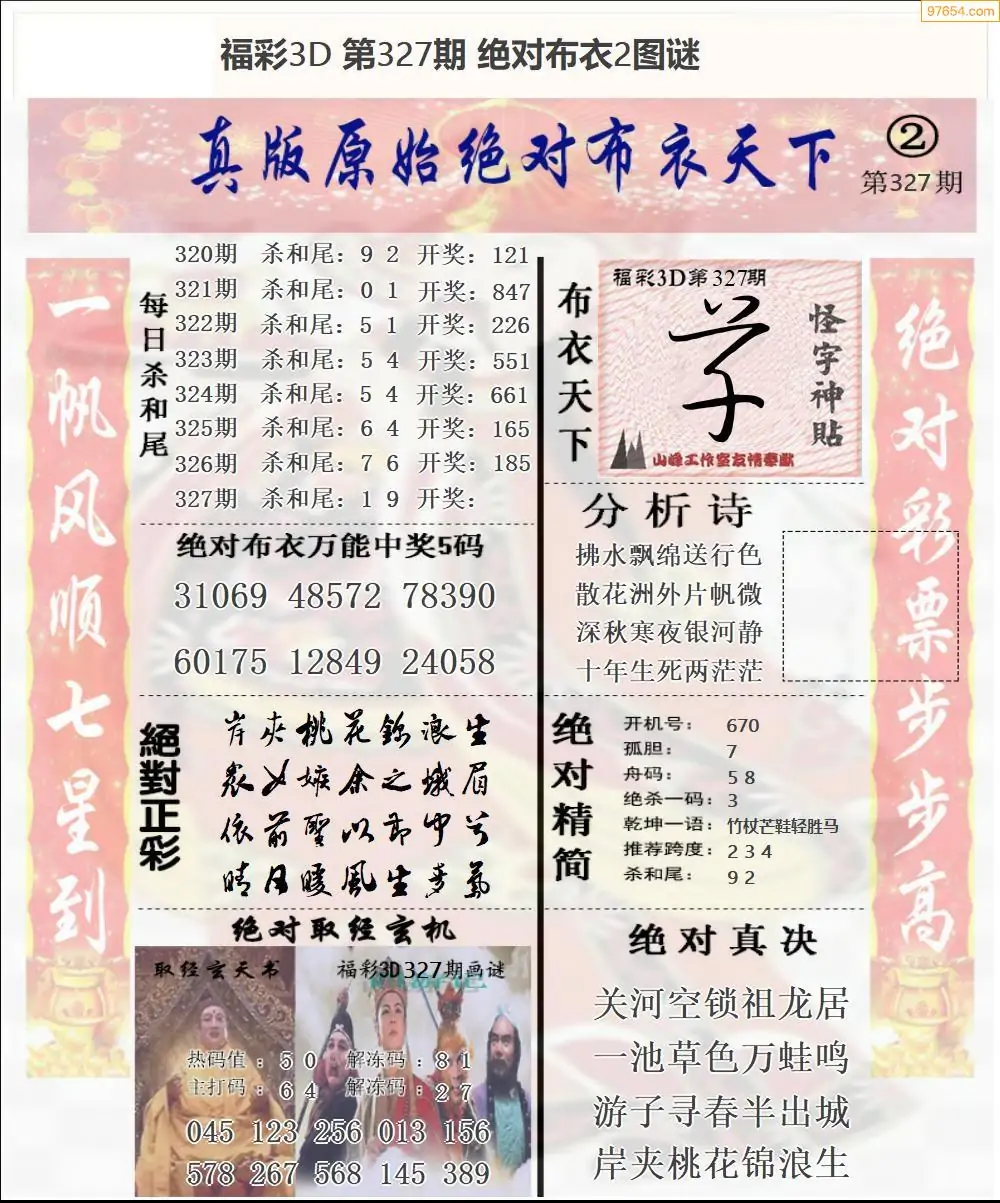 97654.com
福彩3D 第327期 绝对布衣2图谜
真版原始绝对布衣天下
②
第327期
一帆风顺七星到
每日杀和尾
320期 杀和尾：9 2 开奖：121
321期 杀和尾：0 1 开奖：847
322期 杀和尾：5 1 开奖：226
323期 杀和尾：5 4 开奖：551
324期 杀和尾：5 4 开奖：661
325期 杀和尾：6 4 开奖：165
326期 杀和尾：7 6 开奖：185
327期 杀和尾：1 9 开奖：
绝对布衣万能中奖5码
31069 48572 78390
60175 12849 24058
絕對正彩
岸夹桃花锦浪生
众女嫉余之蛾眉
依前圣以节中兮
晴月暖风生
绝对取经玄机
取经玄天书
福彩3D327期画谜
热码值：5 0 解冻码：8 1
主打码：6 4 解冻码：2 7
045 123 256 013 156
578 267 568 145 389
布衣天下
福彩3D第327期
怪字神貼
山峰工作室友情奉献
分析诗
拂水飘绵送行色
散花洲外片帆微
深秋寒夜银河静
十年生死两茫茫
绝对精简
开机号：670
孤胆：7
舟码：5 8
绝杀一码：3
乾坤一语：竹杖芒鞋轻胜马
推荐跨度：2 3 4
杀和尾：9 2
绝对真决
关河空锁祖龙居
一池草色万蛙鸣
游子寻春半出城
岸夹桃花锦浪生
绝对彩票步步高